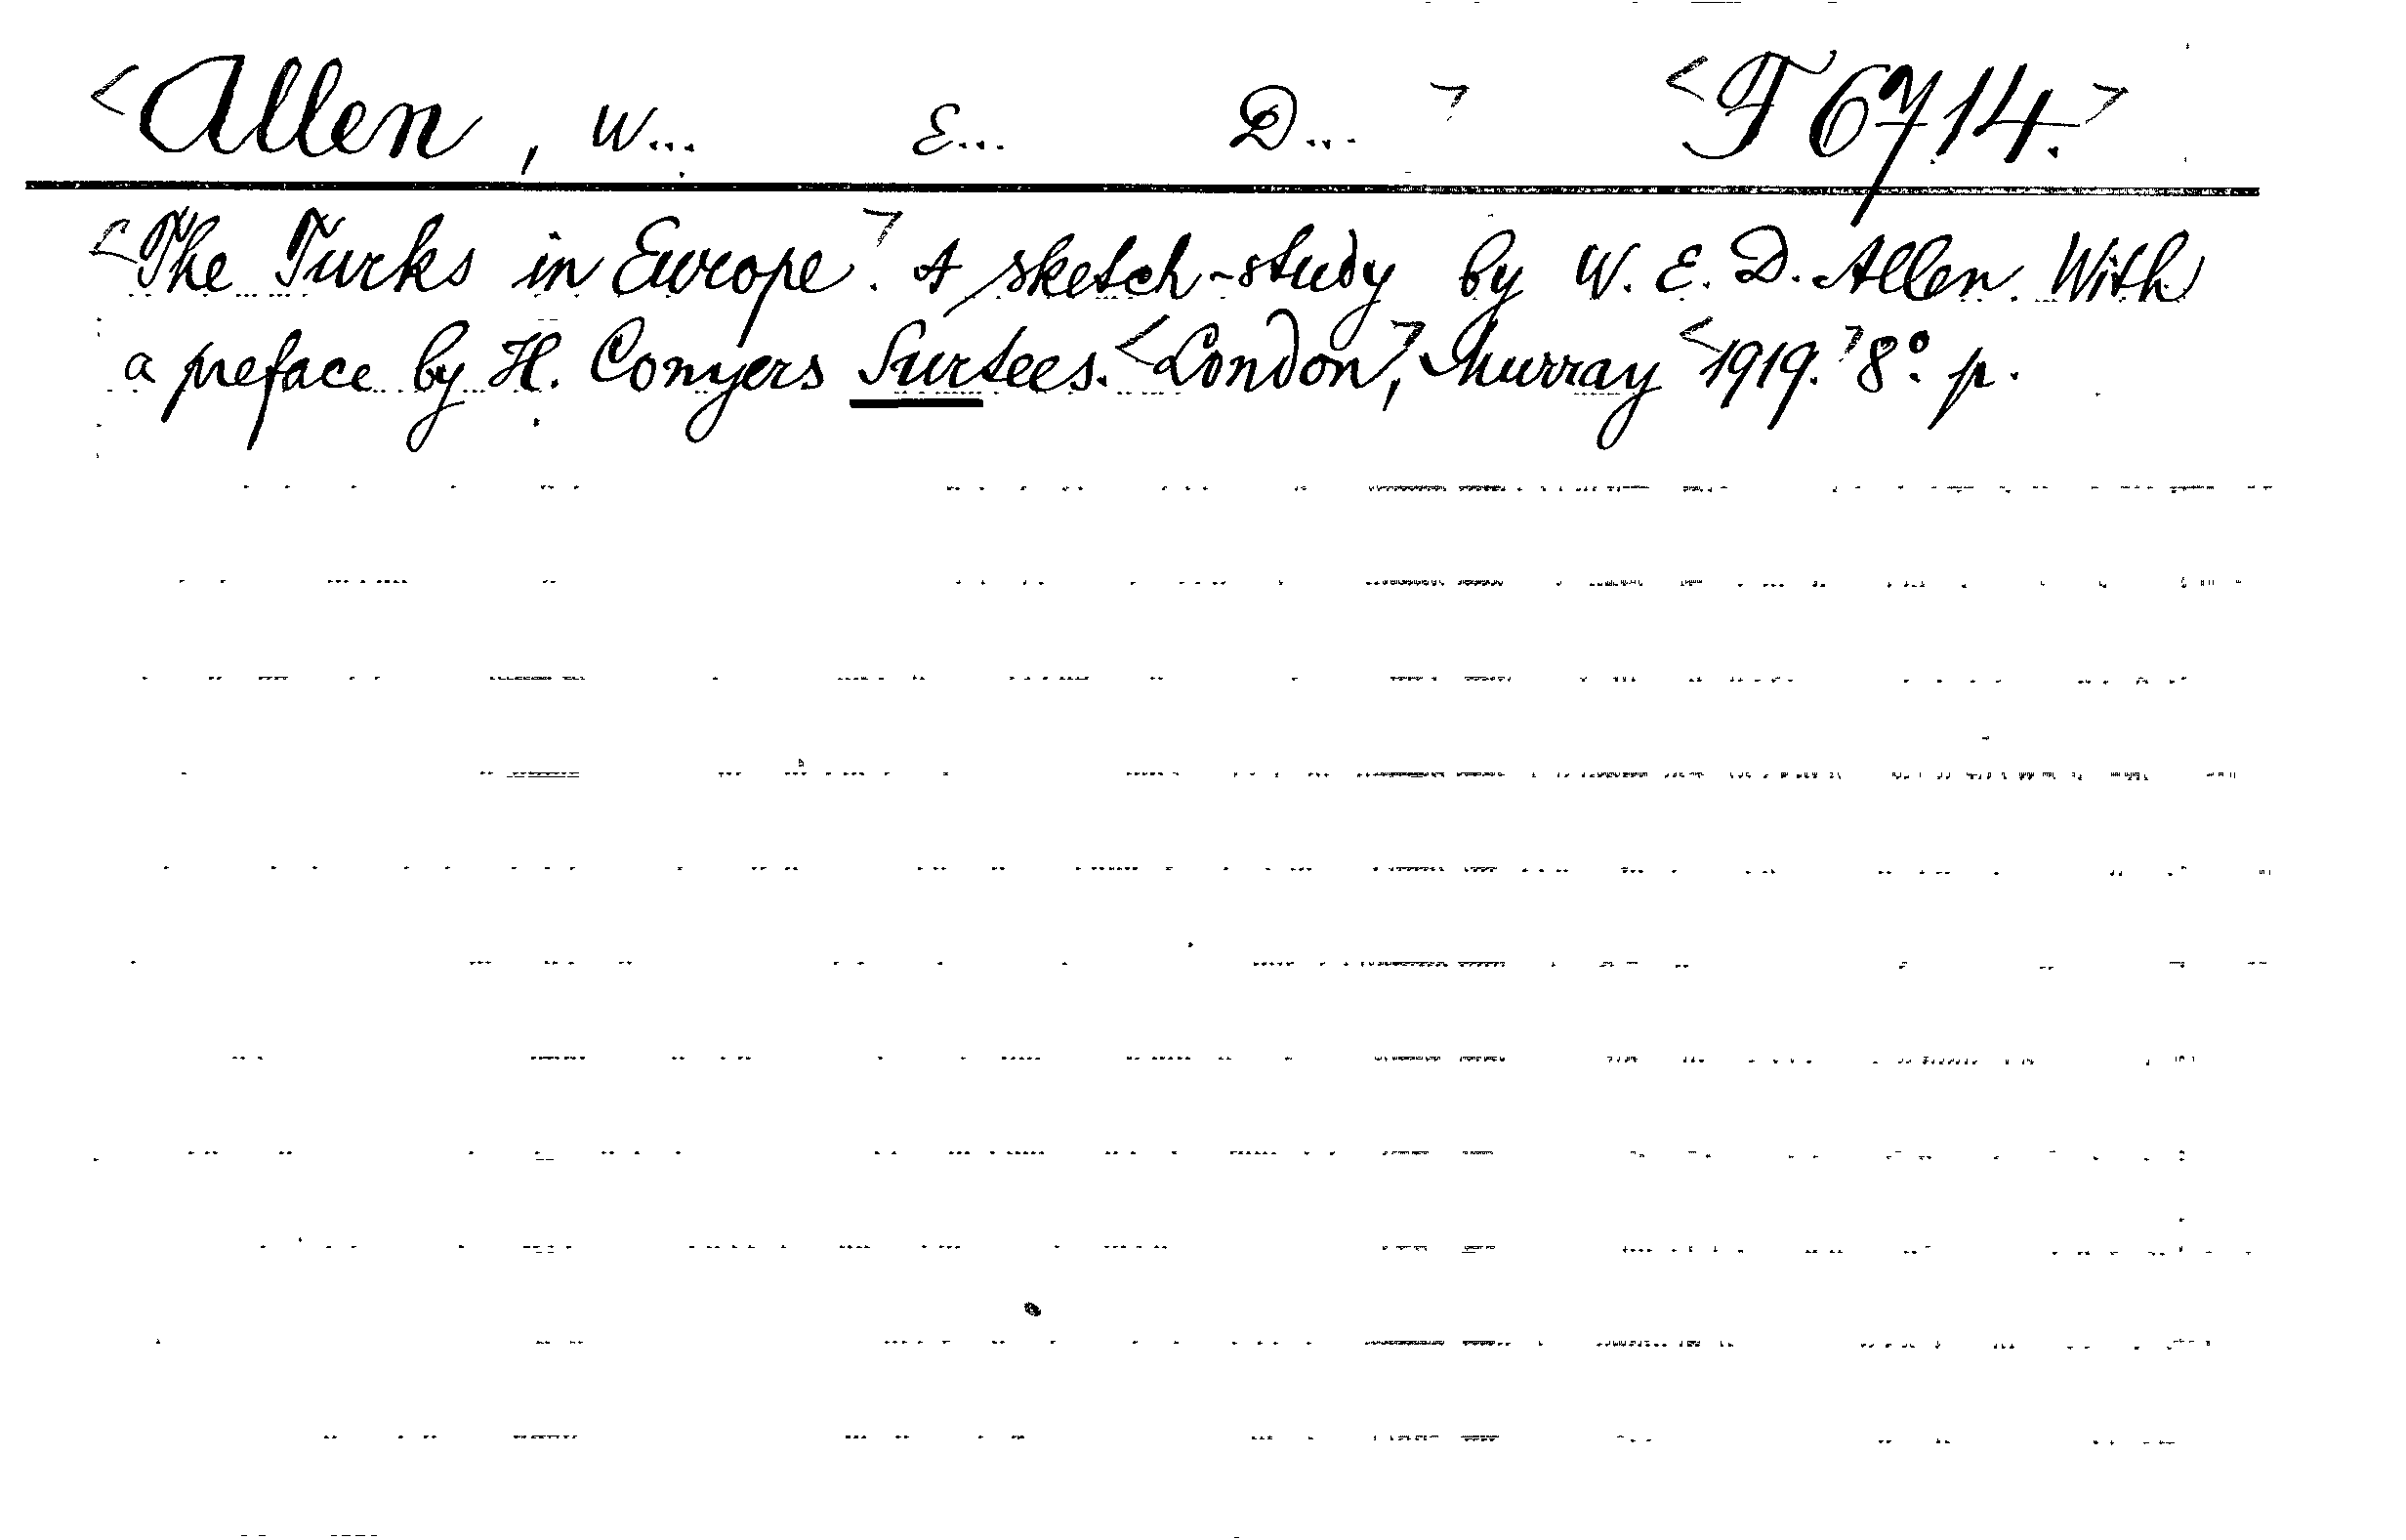 <Allen, W... E... D...> <T 6714.>
<The Turks in Europe>. A sketch-study by W. E. D. Allen. With
a preface by H. Conyers Surtees. <London>, Murray <1919.> 8°. p.